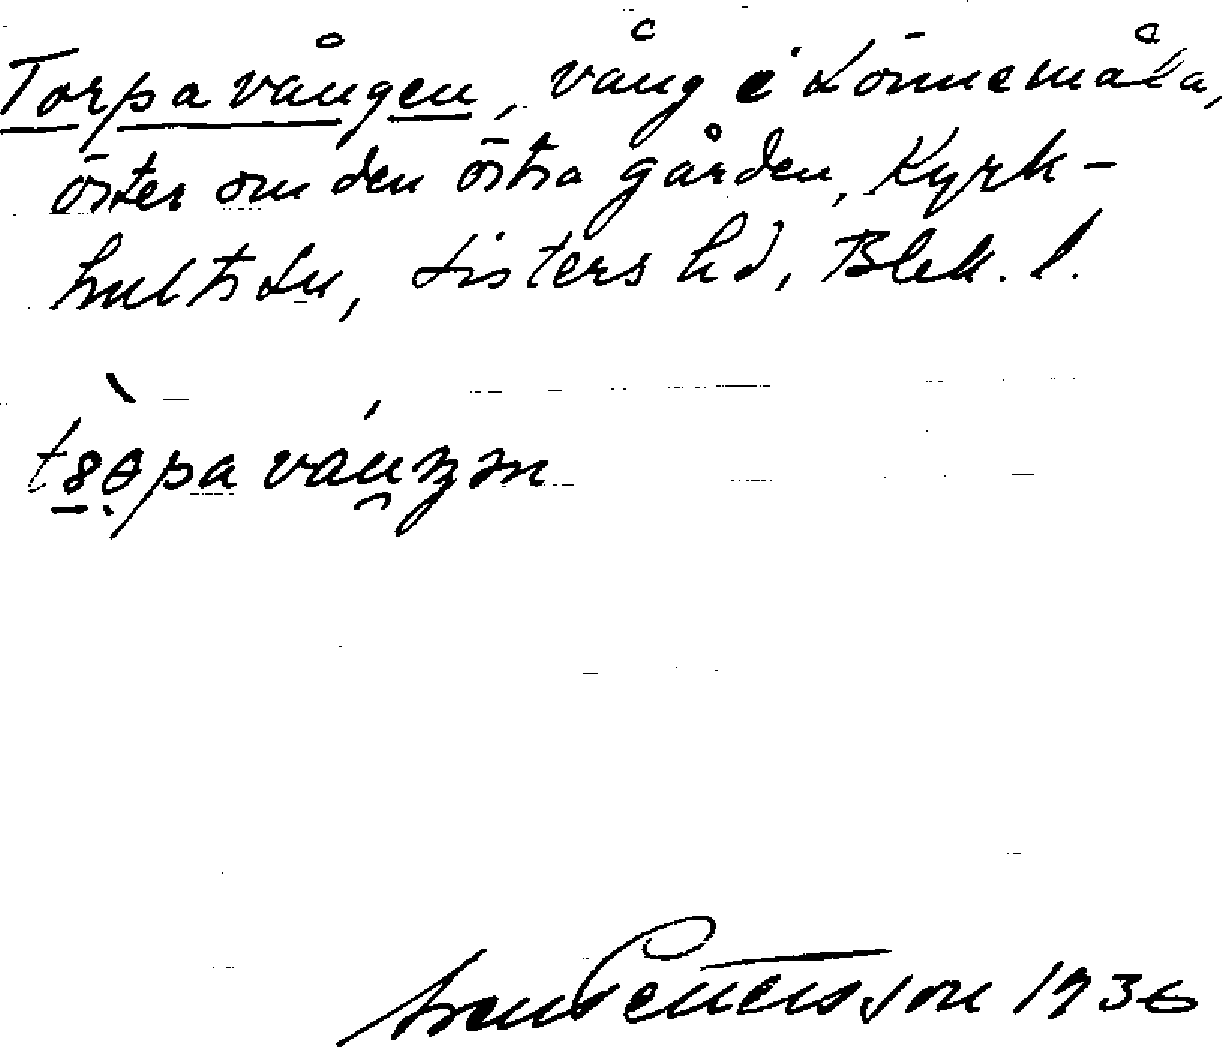 Torpavången, vång i Lönnemåla,
öster om den östra gården, Kyrk-
hults sn, Listers hd, Blek. l.
Pettersson 1936